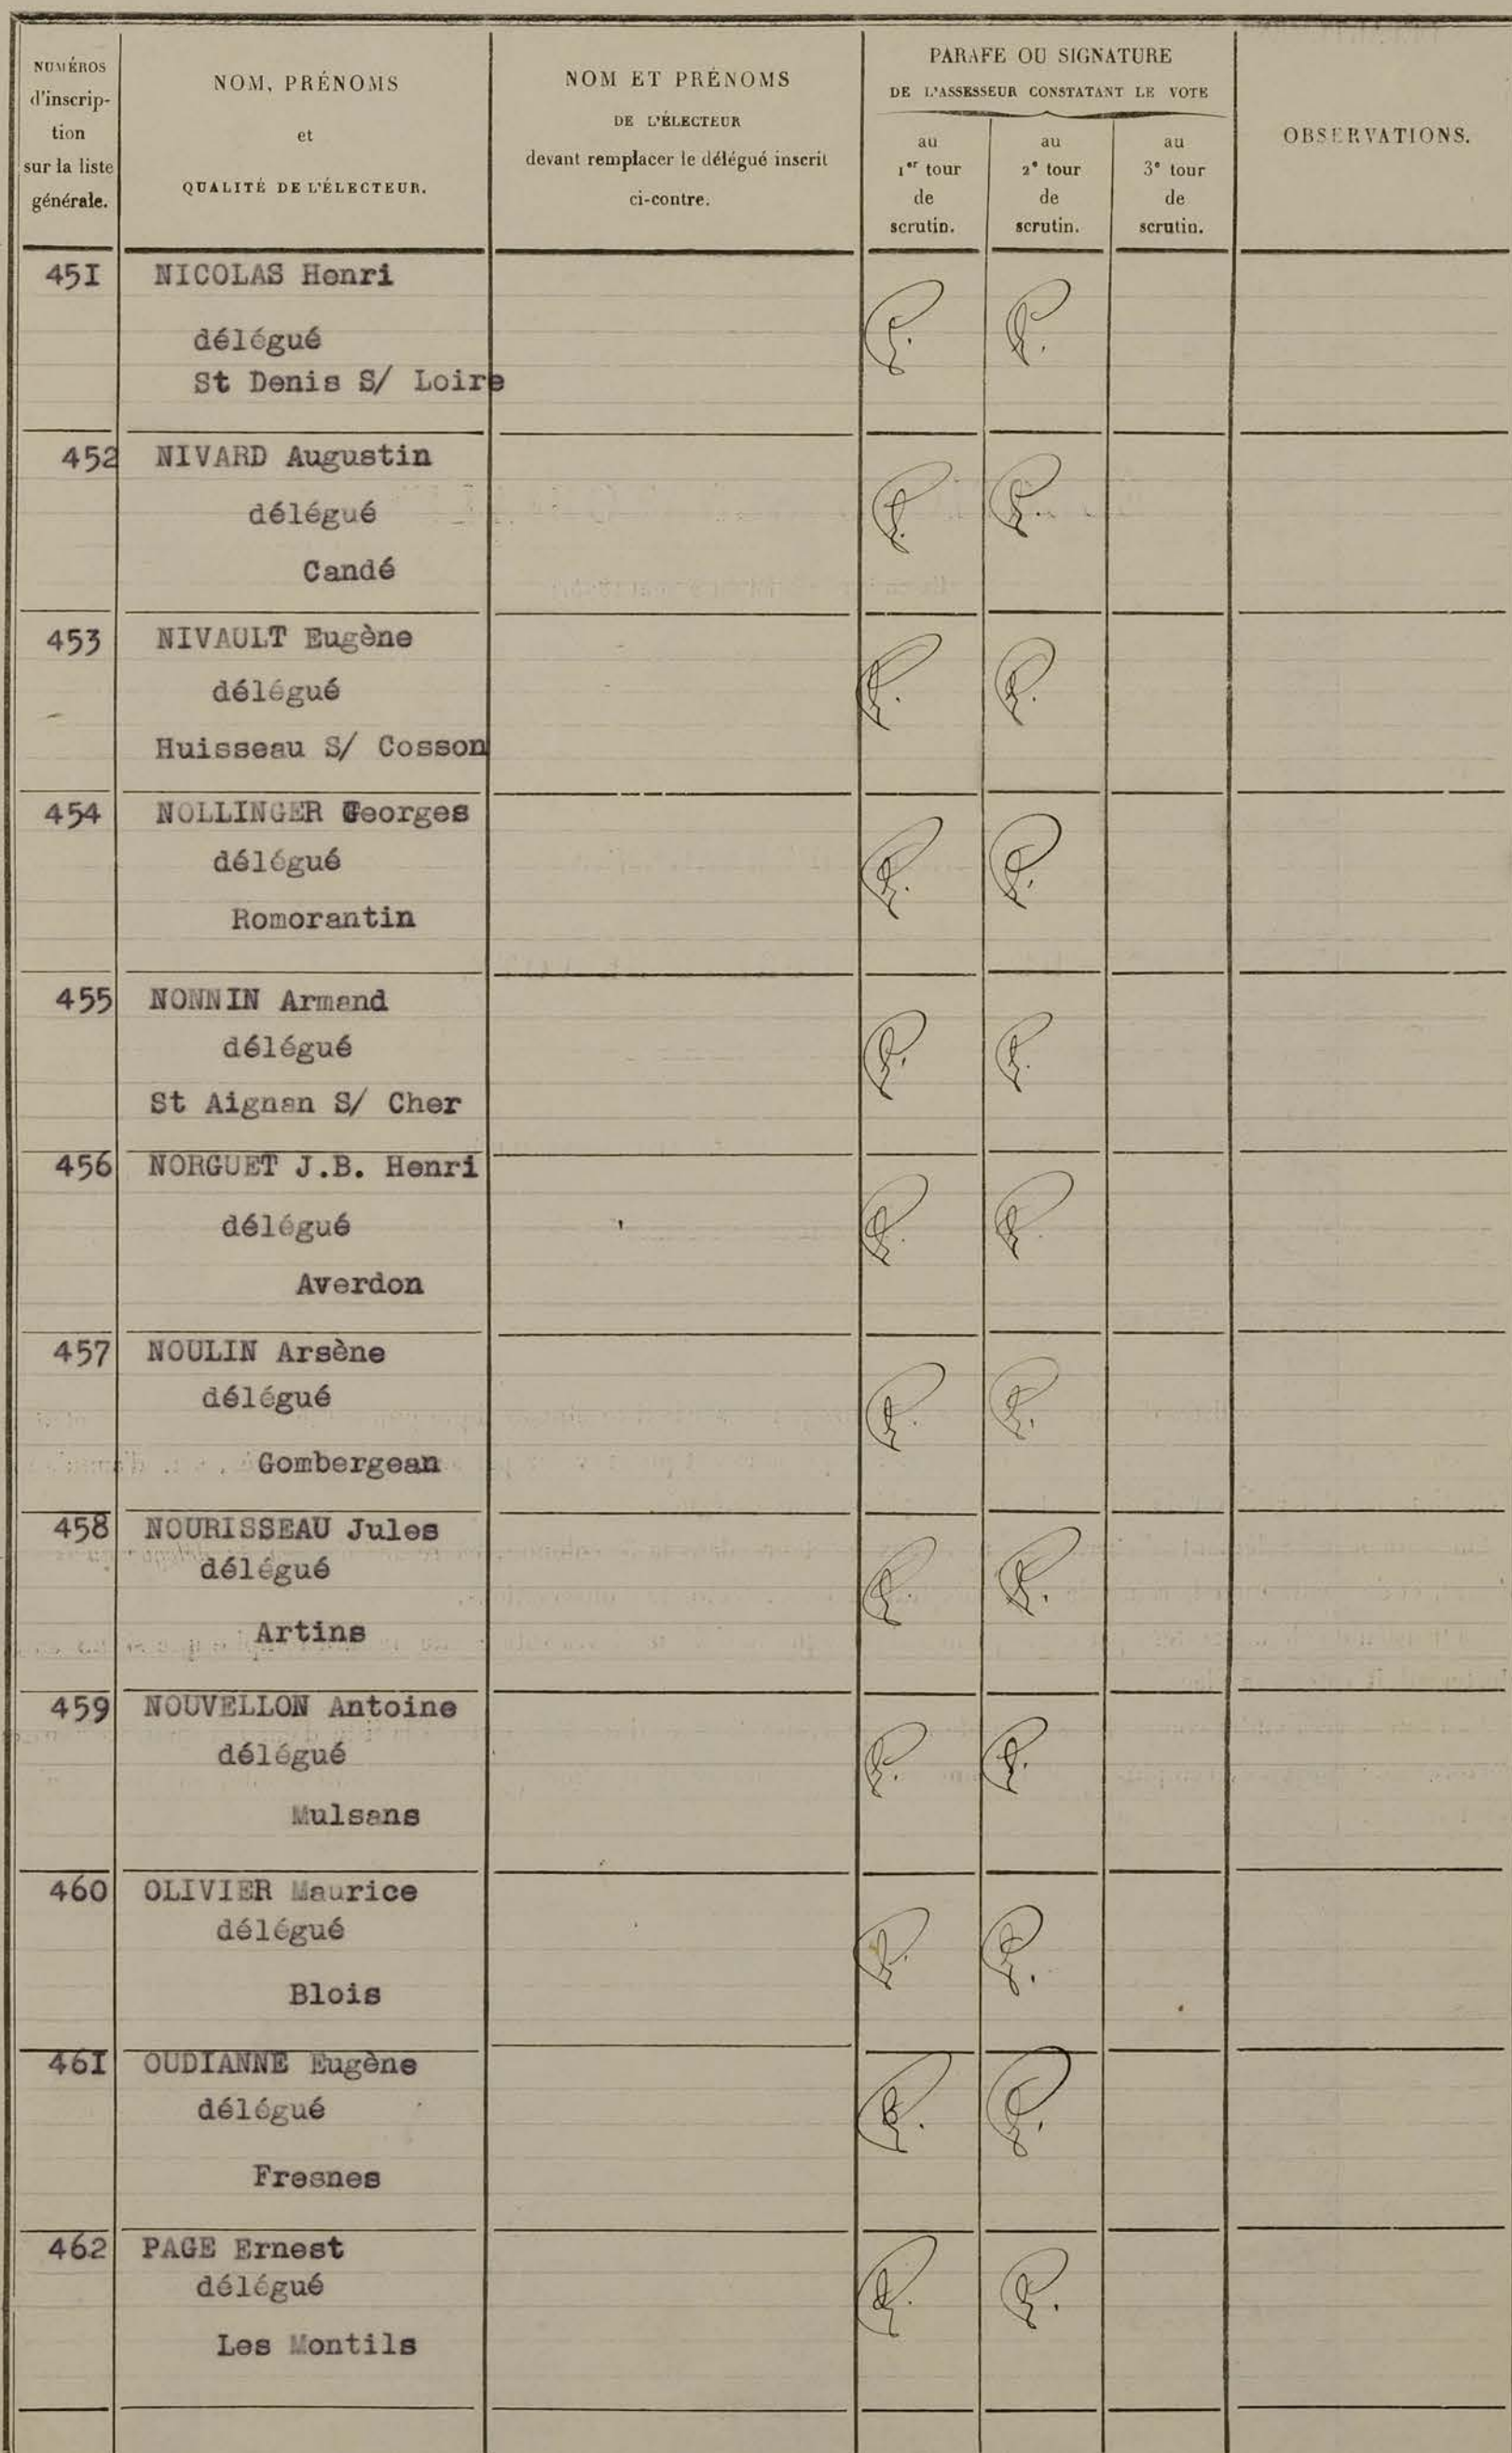 NUMÉROS
d'inscrip-
tion
sur la liste
générale.
NOM, PRÉNOMS
et
QUALITÉ DE L'ÉLECTEUR.
NOM ET PRÉNOMS
DE L'ÉLECTEUR
devant remplacer le délégué inscrit
ci-contre.
PARAFE OU SIGNATURE
DE L'ASSESSEUR CONSTATANT LE VOTE
au
1er tour
de
scrutin.
au
2e tour
de
scrutin.
au
3e tour
de
scrutin.
OBSERVATIONS.
451 NICOLAS Henri
délégué
St Denis S/ Loire
452 NIVARD Augustin
délégué
Candé
453 NIVAULT Eugène
délégué
Huisseau S/ Cosson
454 NOLLINGER Georges
délégué
Romorantin
455 NONNIN Armand
délégué
St Aignan S/ Cher
456 NORGUET J.B. Henri
délégué
Averdon
457 NOULIN Arsène
délégué
Gombergean
458 NOURISSEAU Jules
délégué
Artins
459 NOUVELLON Antoine
délégué
Mulsans
460 OLIVIER Maurice
délégué
Blois
461 OUDIANNE Eugène
délégué
Fresnes
462 PAGE Ernest
délégué
Les Montils